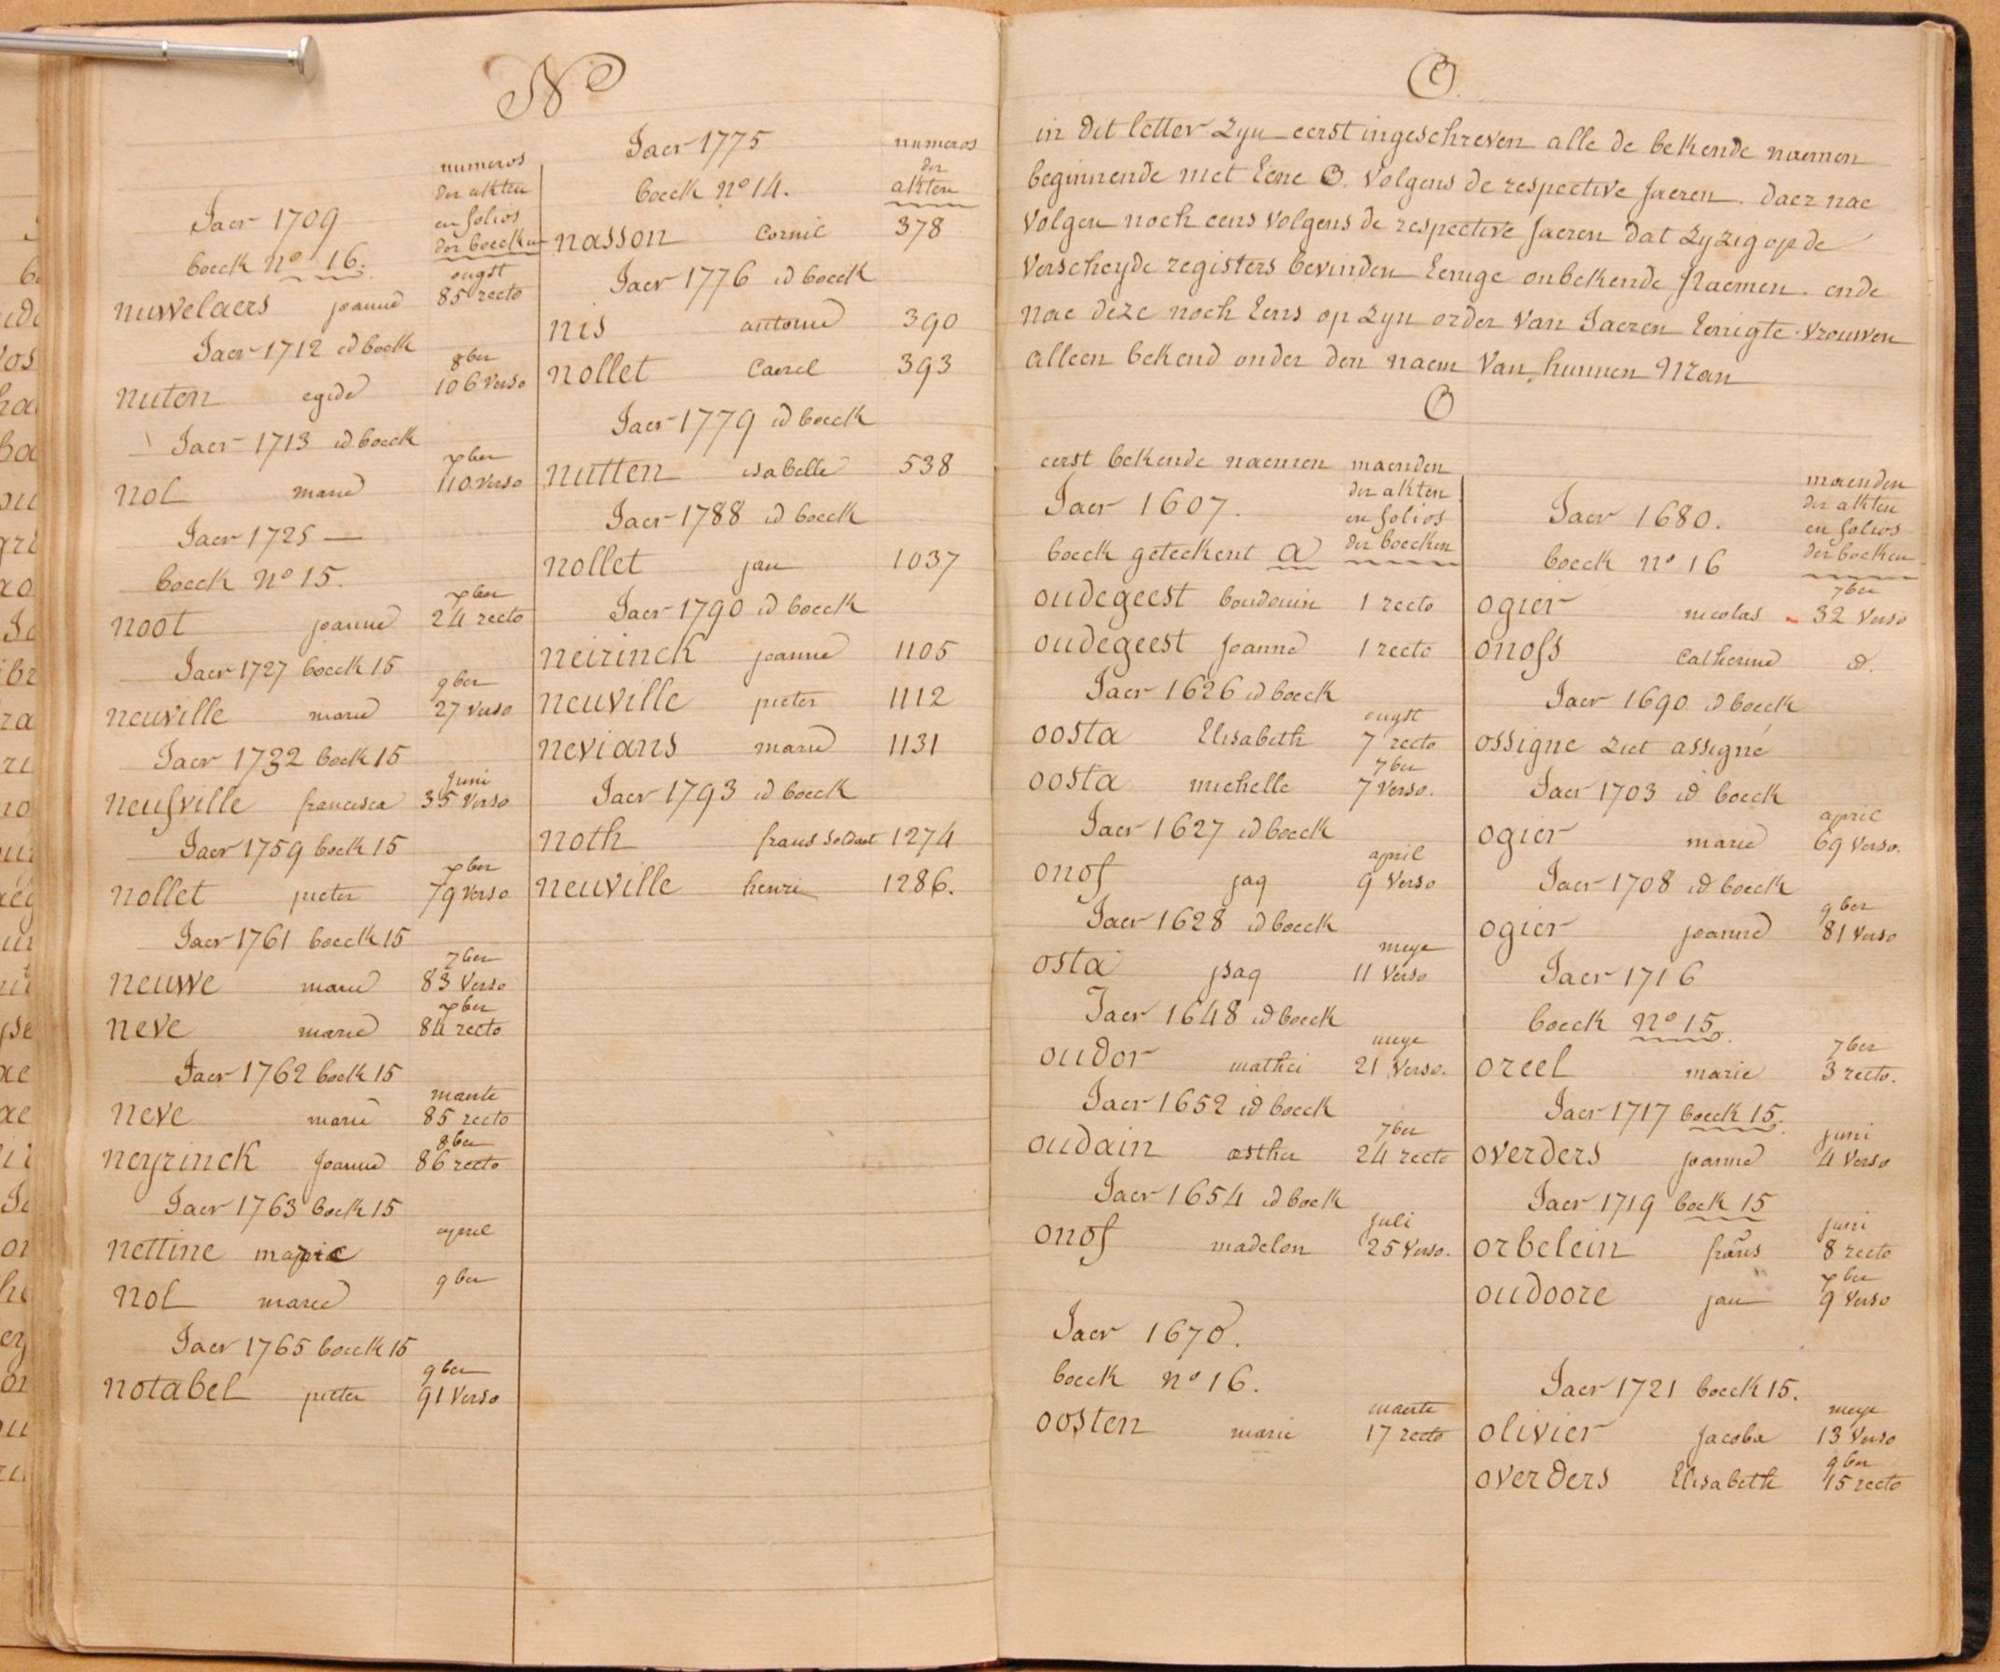 N
numeros
der akten
en folios
der boecken
Jaer 1709
boeck nº 16.
ougst
nuwelaers joanne 85 recto
Jaer 1712 id boek
8ber
nuten egide 106 verso
Jaer 1713 id boeck
xber
nol marie 110 verso
Jaer 1725 —
boeck nº 15.
xber
noot joanne 24 recto
Jaer 1727 boeck 15
9ber
neuville marie 27 verso
Jaer 1732 boek 15
juni
neufville francisca 35 verso
Jaer 1759 boek 15
xber
nollet pieter 79 verso
Jaer 1761 boeck 15
7ber
neuwe marie 83 verso
xber
neve marie 84 recto
Jaer 1762 boek 15
maerte
neve marie 85 recto
8ber
neyrinck Joanne 86 recto
Jaer 1763 boek 15
april
nettine marie
9ber
nol marie
Jaer 1765 boeck 15
9ber
notabel pieter 91 verso
Jaer 1775
boeck nº 14.
numeros
der
akten
nasson Cornil 378
Jaer 1776 id boeck
nis antonie 390
nollet Caerel 393
Jaer 1779 id boeck
nutten isabelle 538
Jaer 1788 id boeck
nollet jan 1037
Jaer 1790 id boeck
neirinck joanne 1105
neuville pieter 1112
nevians marie 1131
Jaer 1793 id boeck
noth frans soldaet 1274
neuville henri 1286.
O.
in dit letter zyn eerst ingeschreven alle de bekende naemen
beginnende met eene O. volgens de respective Jaeren. daer nae
volgen noch eens volgens de respective Jaeren dat zy zig op de
verscheyde registers bevinden eenige onbekende Naemen. ende
nae deze noch eens op zyn order van Jaeren eenigte vrouwen
alleen bekend onder den naem van hunnen Man
O
eerst bekende naemen
maenden
der akten
en folios
der boecken
Jaer 1607.
boeck geteekent a
oudegeest boudouin 1 recto
oudegeest Joanne 1 recto
Jaer 1626 id boeck
ougst
oosta Elisabeth 7 recto
7ber
oosta michelle 7 verso.
Jaer 1627 id boeck
april
onof jaq 9 verso
Jaer 1628 id boeck
meye
osta jsaq 11 verso
Jaer 1648 id boeck
meye
oudor mathei 21 verso.
Jaer 1652 id boeck
7ber
oudain esther 24 recto
Jaer 1654 id boek
juli
onof madelon 25 verso.
Jaer 1670.
boeck nº 16.
maerte
oosten marie 17 recto
maenden
der akten
en folios
der boeken
Jaer 1680.
boeck nº 16
7ber
ogier nicolas 32 verso
onofs Catherine id.
Jaer 1690 id boeck
ossigne ziet assigné
Jaer 1703 id boeck
april
ogier marie 69 verso.
Jaer 1708 id boeck
9ber
ogier joanne 81 verso
Jaer 1716
boeck nº 15.
7ber
oreel marie 3 recto.
Jaer 1717 boeck 15.
juni
overders joanne 4 verso
Jaer 1719 boek 15
juni
orbelein frans 8 recto
xber
oudoore jan 9 verso
Jaer 1721 boeck 15.
meye
olivier Jacoba 13 verso
9ber
overders Elisabeth 15 recto